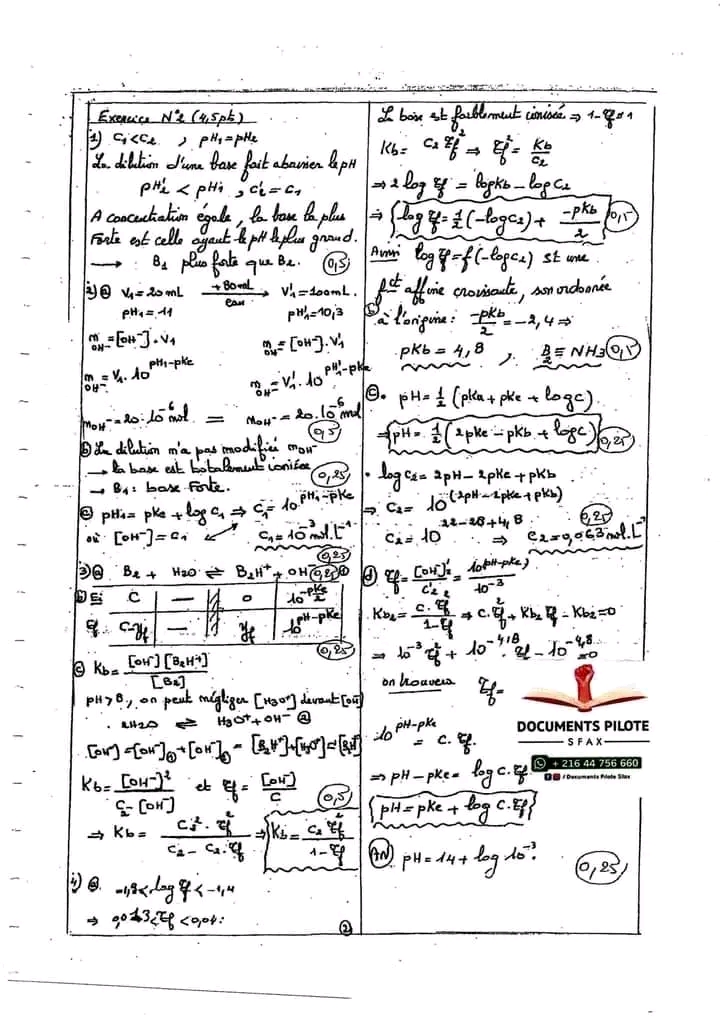 Exercice N°2 (4,5pt)
1) C1<C2 , pH1=pH2
La dilution d'une base fait abaisser le pH
pH'2 < pH1 , C'2 = C1
A concentration égale, la base la plus
Forte est celle ayant le pH le plus grand.
→ B1 plus forte que B2. 0,5
2) a) V1=20mL +80mL eau → V'1=100mL.
pH1=11 pH'1=10,3
mOH- = [OH-].V1 mOH- = [OH-].V'1
mOH- = V1.10^(pH1-pKe) mOH- = V'1.10^(pH'1-pKe)
mOH- = 20.10^-6 mol = mOH- = 20.10^-6 mol
0,5
b) La dilution n'a pas modifiée mOH-
→ la base est totalement ionisée
→ B1: base Forte. 0,25
c) pH1 = pKe + log C1 ⇒ C1 = 10^(pH1-pKe)
où [OH-] = C1 C1 = 10^-3 mol.L^-1
0,25
3) a) B2 + H2O ⇌ B2H+ + OH- 0,25 ①
b) Ei C — 0 10^(-pKe/2)
Ef C-yf — yf 10^(pH-pKe)
0,25
c) Kb = [OH-][B2H+] / [B2]
pH>8, on peut négliger [H3O+] devant [OH-]
2H2O ⇌ H3O+ + OH- ②
[OH-] = [OH-]① + [OH-]② = [B2H+] + [H3O+] = [B2H+]
Kb = [OH-]² / C2-[OH-] et τf = [OH-] / C 0,5
⇒ Kb = C2².τf² / C2 - C2.τf ⇒ Kb = C2 τf² / 1-τf
4) a) -1,8 < log τf < -1,4
⇒ 0,013 < τf < 0,04:
②
La base est faiblement ionisée ⇒ 1-τf ≈ 1
Kb = C2 τf² ⇒ τf² = Kb / C2
⇒ 2 log τf = log Kb - log C2
⇒ log τf = 1/2 (-log C2) + -pKb/2 0,5
Ainsi log τf = f(-log C2) est une
fct affine croissante, son ordonnée
b) à l'origine: -pKb/2 = -2,4 ⇒
pKb = 4,8 , B2 ≡ NH3 0,5
c) • pH = 1/2 (pKa + pKe + log C)
⇒ pH = 1/2 (2pKe - pKb + log C) 0,25
• log C2 = 2pH - 2pKe + pKb
⇒ C2 = 10^(2pH - 2pKe + pKb)
0,25
C2 = 10^(22-28+4,8) ⇒ C2 = 0,063 mol.L^-1
d) τf = [OH-]'2 / C'2 = 10^(pH-pKe) / 10^-3
Kb2 = C.τf² / 1-τf ⇒ C.τf² + Kb2 τf - Kb2 = 0
⇒ 10^-3 τf² + 10^-4,8 . τf - 10^-4,8 = 0
on trouvera τf =
10^(pH-pKe) = C.τf.
⇒ pH - pKe = log C.τf
pH = pKe + log C.τf
AN pH = 14 + log 10^-3.
0,25
DOCUMENTS PILOTE
SFAX
+ 216 44 756 660
/ Documents Pilote Sfax